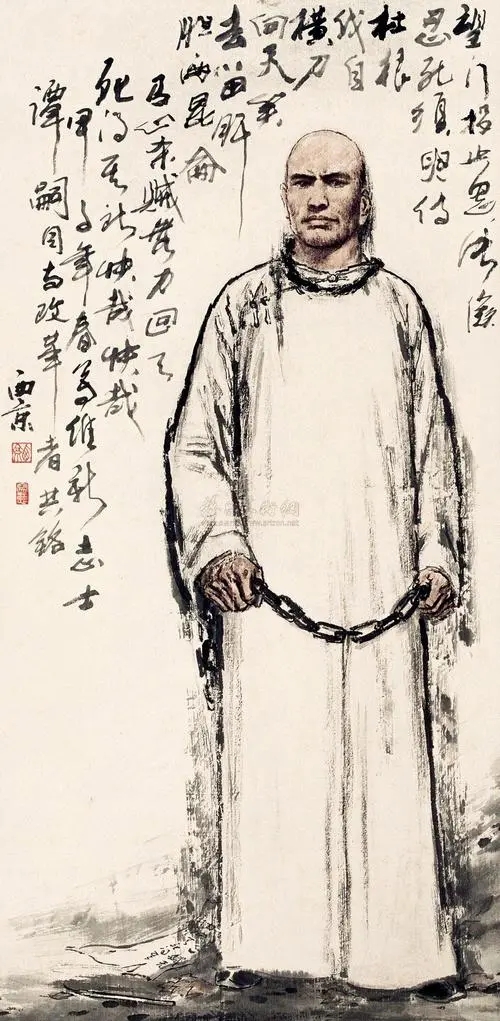 望门投止思张俭
忍死须臾待
杜根
我自
横刀
向天笑
去留肝
胆两昆仑
有心杀贼无力回天
死得其所快哉快哉
甲子年春为维新志士
谭嗣同与改革者共铭